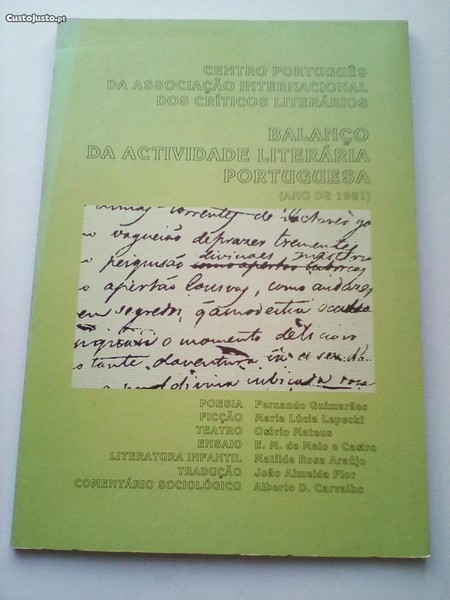 CustoJusto.pt
CENTRO PORTUGUÊS
DA ASSOCIAÇÃO INTERNACIONAL
DOS CRÍTICOS LITERÁRIOS
BALANÇO
DA ACTIVIDADE LITERÁRIA
PORTUGUESA
(ANO DE 1981)
correntes de
o vagueião de prazer trementes
o perquisão divinaes
o apertão convos, como
em segredos,
o momento delicioso
tante da ventura
divina
POESIA Fernando Guimarães
FICÇÃO Maria Lúcia Lepecki
TEATRO Osório Mateus
ENSAIO E. M. de Melo e Castro
LITERATURA INFANTIL Matilde Rosa Araújo
TRADUÇÃO João Almeida Flor
COMENTÁRIO SOCIOLÓGICO Alberto D. Carvalho